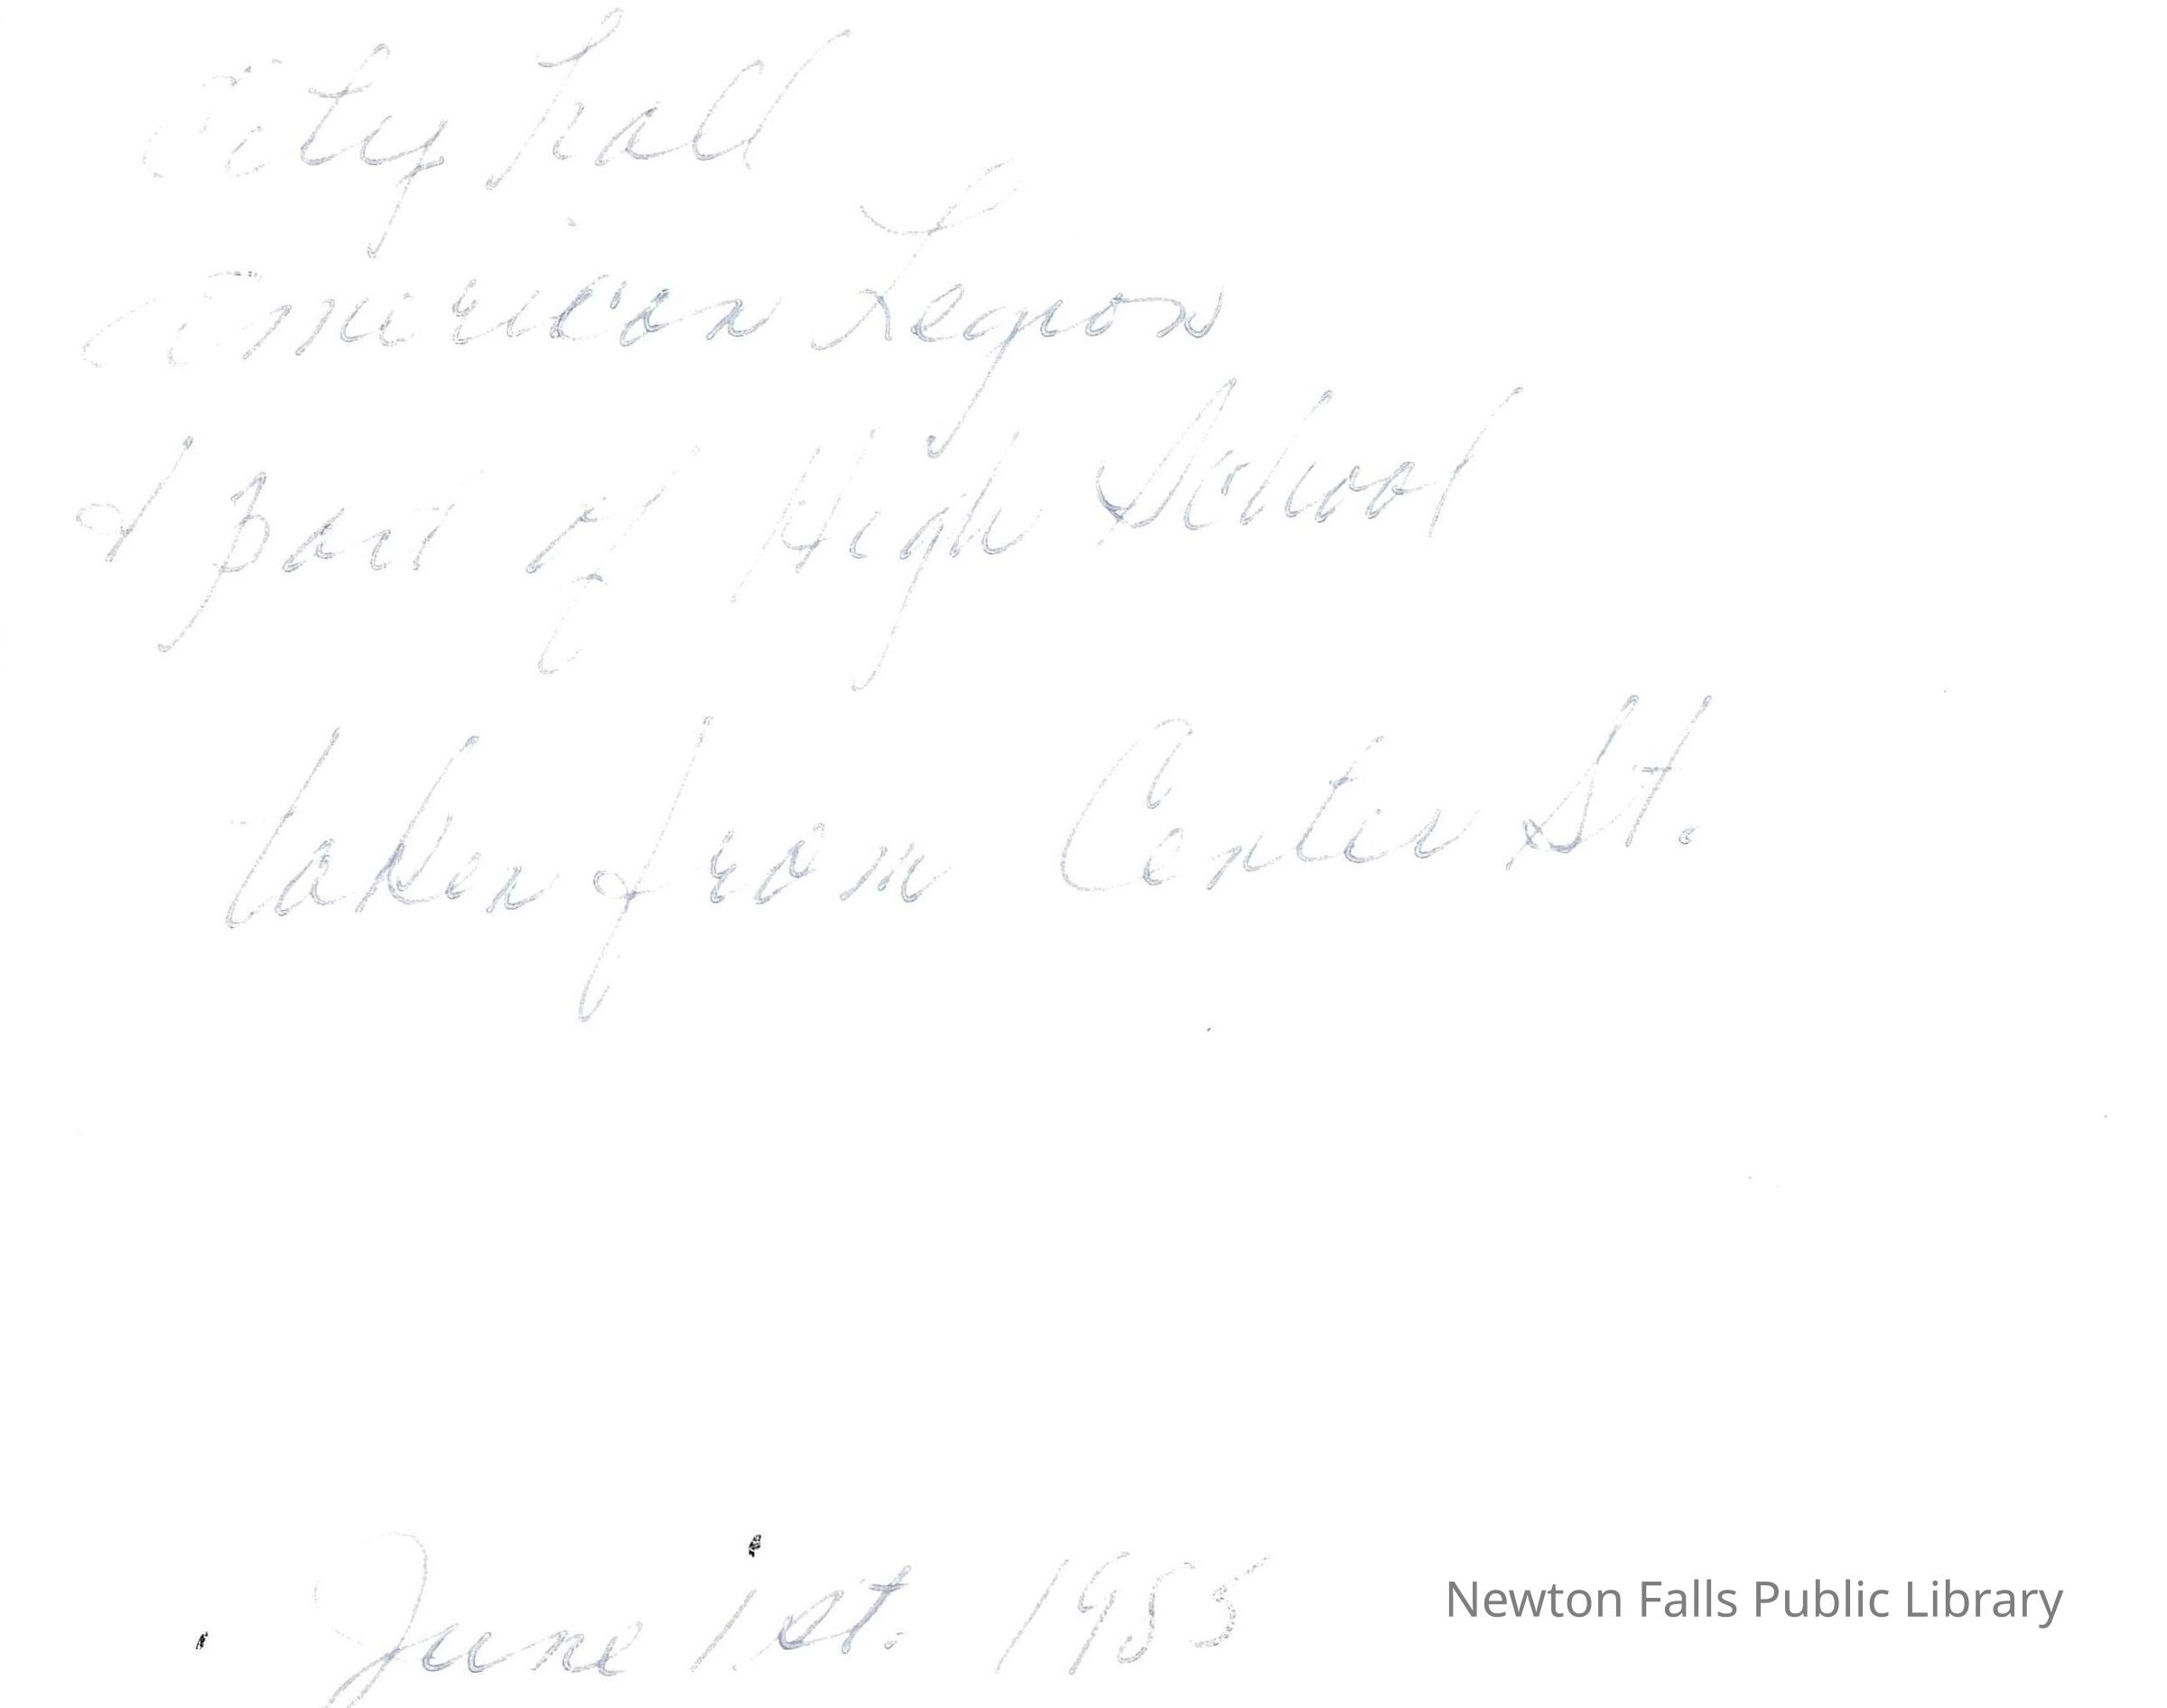 City hall
American Legion
& part of High School
taken from Center St.
June 1st. 1955
Newton Falls Public Library